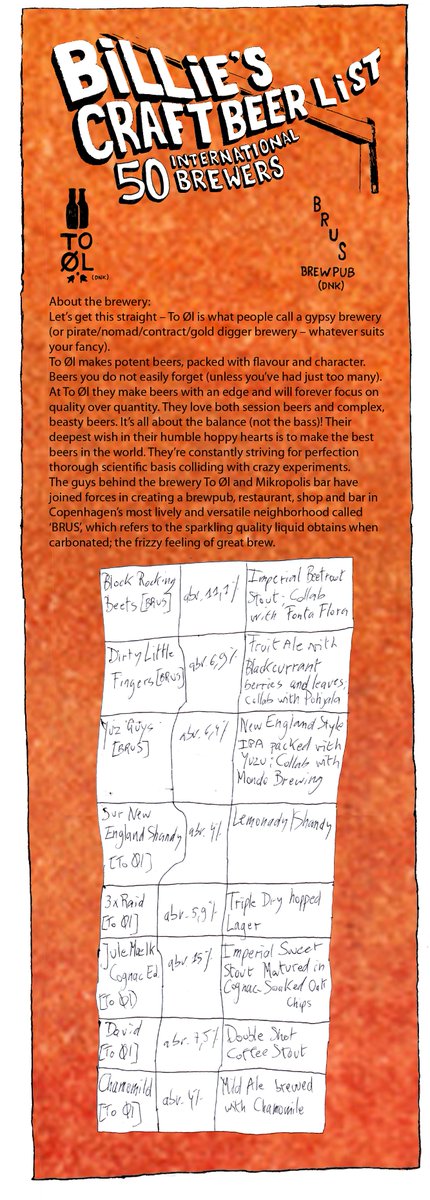 BiLLiE'S
CRAFT BEER LiST
50 INTERNATIONAL
BREWERS
TO
ØL
(DNK)
BRUS
BREWPUB
(DNK)
About the brewery:
Let's get this straight – To Øl is what people call a gypsy brewery
(or pirate/nomad/contract/gold digger brewery – whatever suits
your fancy).
To Øl makes potent beers, packed with flavour and character.
Beers you do not easily forget (unless you've had just too many).
At To Øl they make beers with an edge and will forever focus on
quality over quantity. They love both session beers and complex,
beasty beers. It's all about the balance (not the bass)! Their
deepest wish in their humble hoppy hearts is to make the best
beers in the world. They're constantly striving for perfection
thorough scientific basis colliding with crazy experiments.
The guys behind the brewery To Øl and Mikropolis bar have
joined forces in creating a brewpub, restaurant, shop and bar in
Copenhagen's most lively and versatile neighborhood called
'BRUS', which refers to the sparkling quality liquid obtains when
carbonated; the frizzy feeling of great brew.
Block Rocking
Beets [BRUS]
abv. 11,1%
Imperial Beetroot
Stout - Collab
with Fonta Flora
Dirty Little
Fingers [BRUS]
abv 6,9%
Fruit Ale with
Blackcurrant
berries and leaves;
collab with Pohjala
Yuz Guys
[BRUS]
abv. 6,4%
New England Style
IPA packed with
Yuzu; Collab with
Mondo Brewing
Sur New
England Shandy
[To Øl]
abv. 4%
Lemonady Shandy
3x Raid
[To Øl]
abv. 5,9%
Triple Dry hopped
Lager
Jule Mælk
Cognac Ed.
[To Øl]
abv 15%
Imperial Sweet
Stout Matured in
Cognac-Soaked Oak
Chips
David
[To Øl]
abv. 7,5%
Double Shot
Coffee Stout
Chamomild
[To Øl]
abv. 4%
Mild Ale brewed
with Chamomile